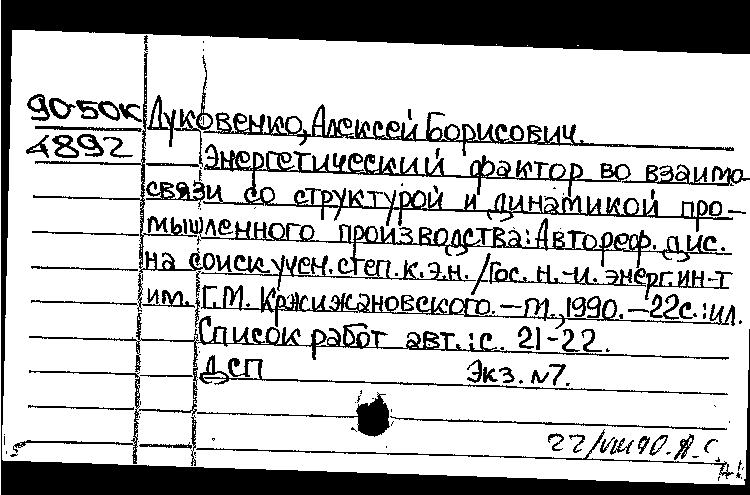 90-50к Луковенко, Алексей Борисович.
4892 Энергетический фактор во взаимо-
связи со структурой и динамикой про-
мышленного производства: Автореф. дис.
на соиск. учен. степ. к.э.н. / Гос. н.-и. энерг. ин-т
им. Г.М. Кржижановского. — М., 1990. — 22с.: ил.
Список работ авт.: с. 21-22.
ДСП Экз. №7.
22/VIII 90. А.С.